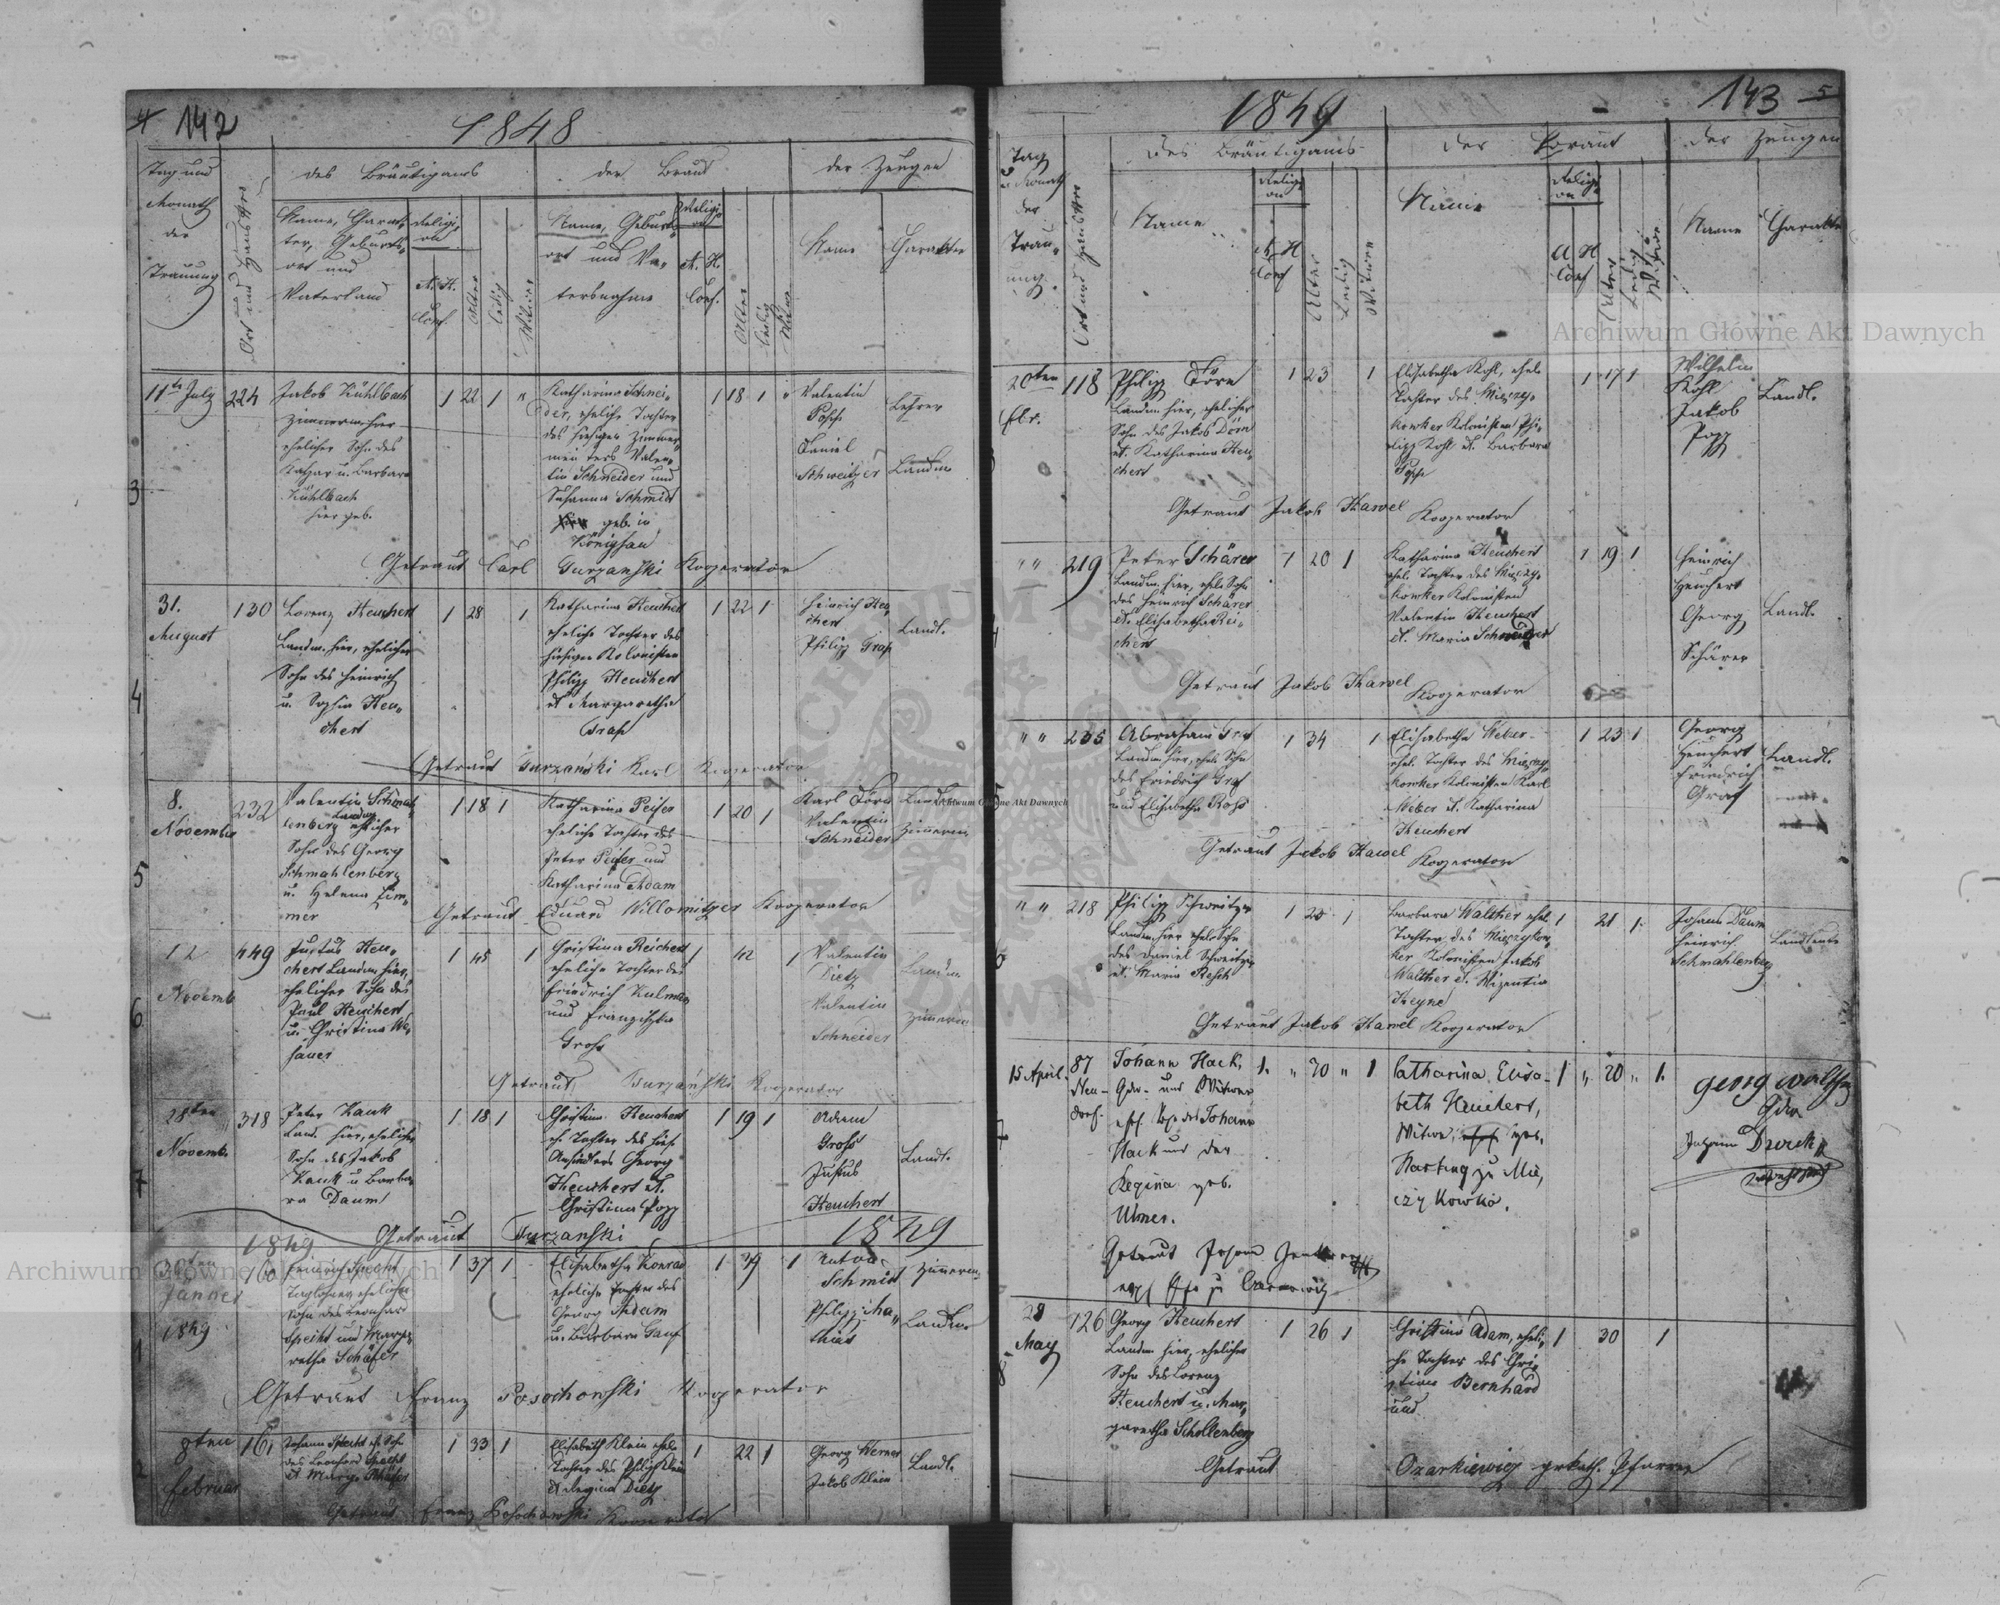 4 142
1848
Tag und
Monath
der
Trauung
Ort und Haus Nro
des Bräutigams
Name, Charak-
ter, Geburts-
ort und
Vaterland
Religi-
on
A. H.
Conf.
Alter
ledig
Witwer
der Braut
Name, Geburts-
ort und Va-
tersnahme
Religi-
on
A. H.
Conf.
Alter
ledig
Witwe
der Zeugen
Name
Charakter
3
11te July
224
Jakob Kühlbach
Zimmerm. hier
ehelicher Sohn des
u. Barbara
Kühlbach
hier geb.
1 22 1 "
Katharina Schnei-
der, eheliche Tochter
des hiesigen Zimmer-
Valen-
tin Schneider und
Susanna Schmidt
geb. in
Königsau
1 18 1 "
Valentin
Posch
Daniel
Schweitzer
Lehrer
Landm
Getraut Carl Turzanski Kooperator
4
31.
August
130
Lorenz Heuchert
Landm. hier, ehelicher
Sohn des Heinrich
u. Sophia Heu-
chert
1 28 1
Katharina Heuchert
eheliche Tochter des
hiesigen Kolonisten
Philipp Heuchert
et Margaretha
Graf
1 22 1
Heinrich Heu-
chert
Philipp Graf
Landl.
Getraut Turzański Karl Kooperator
5
8.
November
232
Valentin Schmah-
lenberg Landm ehlicher
Sohn des Georg
Schmahlenberg
u. Helena Zim-
mer
1 18 1
Katharina Peifer
eheliche Tochter des
Peter Peifer und
Katharina Adam
1 20 1
Karl Dörn
Valentin
Schneider
Landl.
Zimmerm
Getraut Eduard Willomitzer Kooperator
6
12
Novemb
449
Justus Heu-
chert Landm. hier,
ehelicher Sohn des
Paul Heuchert
u. Christina We-
1 45 1
Christina Reichert
eheliche Tochter des
Friedrich Kulman
und Franziska
Gross
1 42 1
Valentin
Dietz
Valentin
Schneider
Landm
Zimmerm
Getraut Turzański Kooperator
7
28ten
Novemb.
318
Peter Kauk
Land. hier, ehelicher
Sohn des Jakob
Kauk u Barba-
ra Daum
1 18 1
Christina Heuchert
eh Tochter des hies.
Ansiedlers Georg
Heuchert et.
Christina Popp
1 19 1
Adam
Gross
Justus
Heuchert
Landl.
Getraut Turzanski
1849 1849
1
30ten
Jänner
1849
160
Heinrich Specht
Taglöhner ehelicher
Sohn des Leonhard
Specht und Marga-
retha Schäfer
1 37 1
Elisabetha Konrad
eheliche Tochter des
Georg Adam
u. Barbara Ganf
1 39 1
Anton
Schmidt
Philipp Ma-
thias
Zimmerm.
Landm.
Getraut Franz Posochowski Kooperator
2
8ten
Februar
161
Johann Specht eh. Sohn
des Leonhard Specht
et Marg. Schäfer
1 33 1
Elisabeth Klein ehel.
Tochter des Philip Klein
et Regina Dietz
1 22 1
Georg Werner
Jakob Klein
Landl.
Getraut Franz Posochowski Kooperator
1849
143 5
Tag
u Monath
der
Trau-
ung.
Ort und Haus Nro
des Bräutigams
Name
Religi-
on
A H
Conf
Alter
Ledig
Witwer
der Braut
Name
Religi-
on
A H
Conf
Alter
Ledig
Witwe
der Zeugen
Name Charakter
20ten
Febr.
118
Philipp Dörn
Landm. hier, ehelicher
Sohn des Jakob Dörn
et. Katharina Heu-
chert
1 23 1
Elisabetha Kohl, ehel.
Tochter des Miczy-
kowker Kolonisten Phi-
lipp Kohl et. Barbara
1 17 1
Wilhelm
Kohl
Jakob
Popp
Landl.
Getraut Jakob Hawel Kooperator
" "
219
Peter Schärer
Landm. hier, ehel. Sohn
des Heinrich Schärer
et. Elisabetha Rei-
chert
1 20 1
Katharina Heuchert
ehel. Tochter des Miczy-
kowker Kolonisten
Valentin Heuchert
et. Maria Schweitzer
1 19 1
Heinrich
Heuchert
Georg
Schärer
Landl.
Getraut Jakob Hawel Kooperator
" "
235
Abraham Graf
Landm. hier, ehel. Sohn
des Friedrich Graf
und Elisabetha Ross
1 34 1
Elisabetha Weber
ehel. Tochter des Miczy-
kowker Kolonisten Karl
Weber et. Katharina
Heuchert
1 23 1
Georg
Heuchert
Friedrich
Graf
Landl.
Getraut Jakob Hawel Kooperator
" "
218
Philipp Schweitzer
Landm. hier ehel. Sohn
des Daniel Schweitzer
et. Maria Resch
1 20 1
Barbara Walther ehel.
Tochter des Miczykow-
ker Kolonisten Jakob
Walther et.
1 21 1
Johann Daum
Heinrich
Schmahlenberg
Landleute
Getraut Jakob Hawel Kooperator
7
15 April
87
Neu-
dorf.
Johann Hack,
Gdr. und Witwer
des Johann
Hack und der
Regina geb.
Ulmer.
1. " 70 " 1
Catharina Elisa-
beth Heuchert,
Witwe, geb.
Harting zu Mi-
czykowko.
1 " 20 " 1.
Georg Walther
Gdr
Johann
Getraut Johann
8
28
May
126
Georg Heuchert
Landm hier, ehelicher
Sohn des Lorenz
Heuchert u. Mar-
garetha Schollenberg
1 26 1
Christina Adam, eheli-
che Tochter des Chri-
stian Bernhard
und
1 30 1
Getraut Ozarkiewicz grkath. Pfarrer
Archiwum Główne Akt Dawnych
Archiwum Główne Akt Dawnych
Archiwum Główne Akt Dawnych